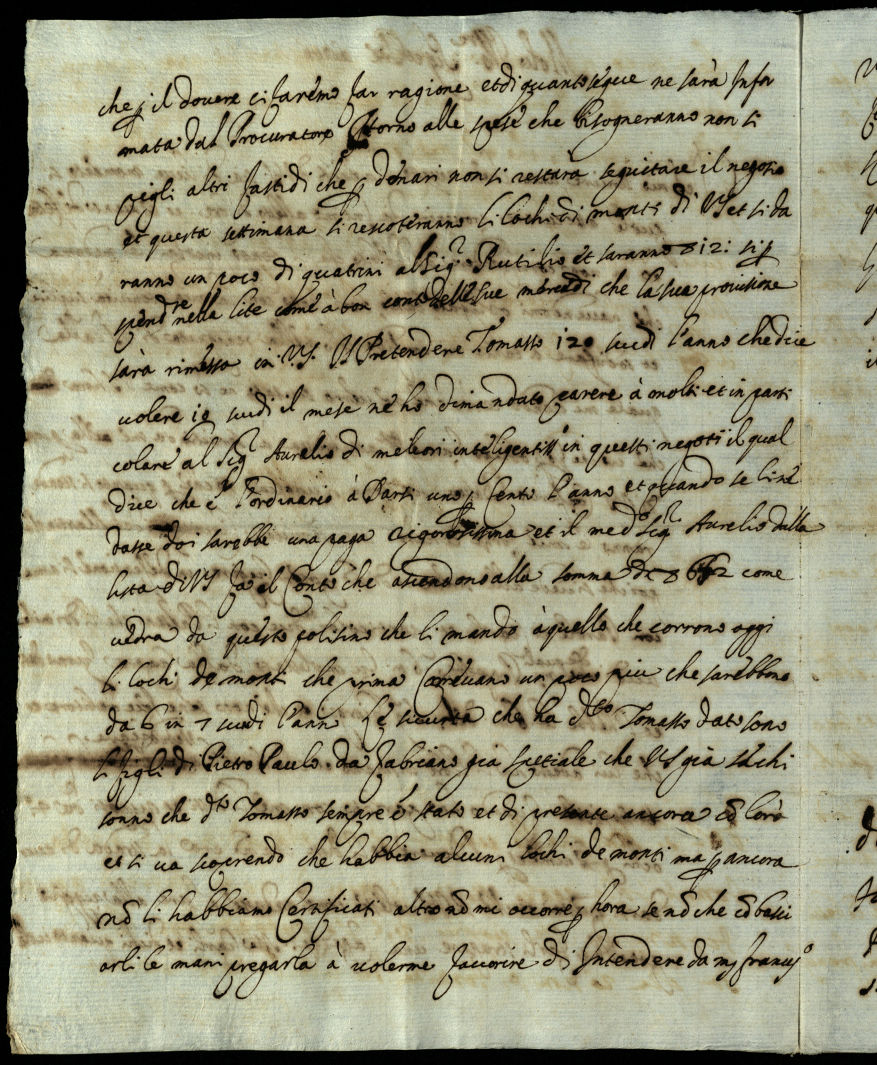 che p il douere ci faremo far ragione et di quanto segue ne sarà Infor
mata dal Procuratore Itorno alle spese che bisogneranno non si
pigli altri fastidi che p denari non si restarà seguitare il negotio
et questa settimana si rescoteranno li lochi di monti di VS et si da
ranno un poco di quatrini al Sig.r Rutilio et saranno 12: si p
spendre nella lite come à bon conto delle sue mercedi che la sua provisione
sarà rimessa in VS. Il Pretendere Tomasso 120 scudi l'anno che dice
uolere 10 scudi il mese ne ho dimandato parere à molti et in parti
colare al Sig.r Aurelio di meliori inteligentiss.i in questi negotij il qual
dice che è l'ordinario à Darsi uno p Cento l'anno et quando se line
dasse doi sarebbe una paga rigorosissima et il med.o Sig.r Aurelio dalla
lista di VS fa il Conto che ascendono alla somma de come
uedra da questo polisino che li mando à quello che corrono oggi
li lochi de monti che prima Correuano un poco piu che sarebbono
da 6 in 7 scudi l'anno Le sicurtà che ha d.to Tomasso dato sono
li figli di Pietro Paulo da Fabriano gia spetiale che VS già sà chi
sonno che d.to Tomasso sempre è stato et di presente ancora cō loro
et si ua scoprendo che habbia alcuni lochi de monti ma p ancora
nō li habbiamo Certificati altro nō mi occorre p hora se nō che cō basci
arli le mani pregarla à uolerme fauorire di Intendere da m.s franc.o